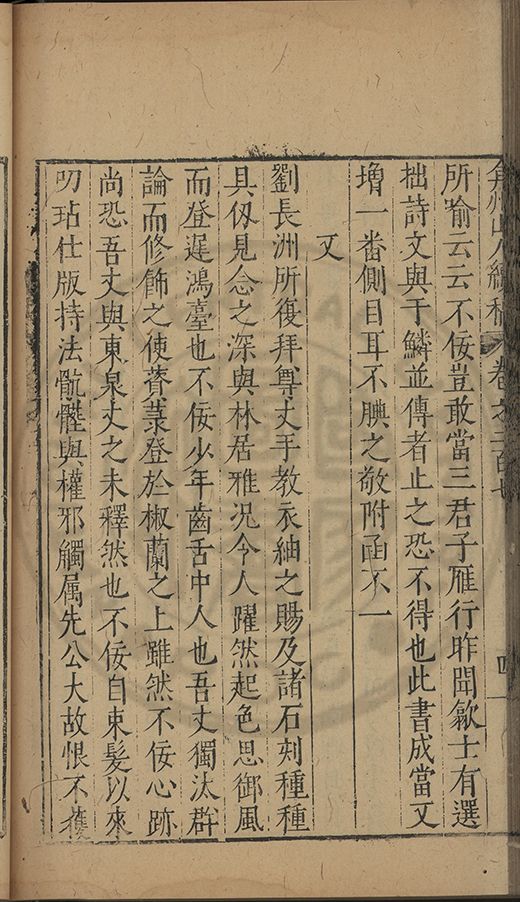 弇州山人續稿 卷之二百七 四
所喻云云不佞豈敢當三君子雁行昨聞歙士有選
拙詩文與于鱗並傳者止之恐不得也此書成當又
增一番側目耳不腆之敬附函不一
又
劉長洲所復拜尊丈手教衣紬之賜及諸石刻種種
具仭見念之深與林居雅况今人躍然起色思御風
而登遲鴻臺也不佞少年齒舌中人也吾丈獨汰群
論而修飾之使薋菉登於椒蘭之上雖然不佞心跡
尚恐吾丈與東泉丈之未釋然也不佞自束髮以來
叨玷仕版持法骯髒與權邪觸属先公大故恨不獲